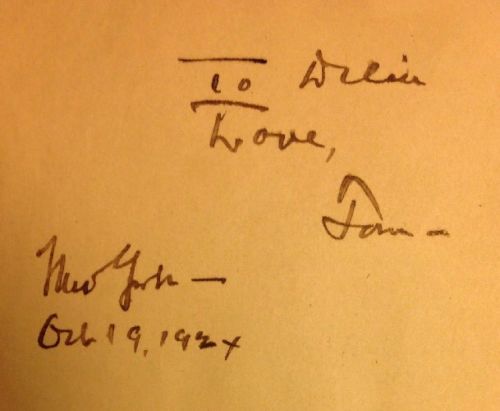 To
Love,
Tom –
New York –
Oct 19, 192